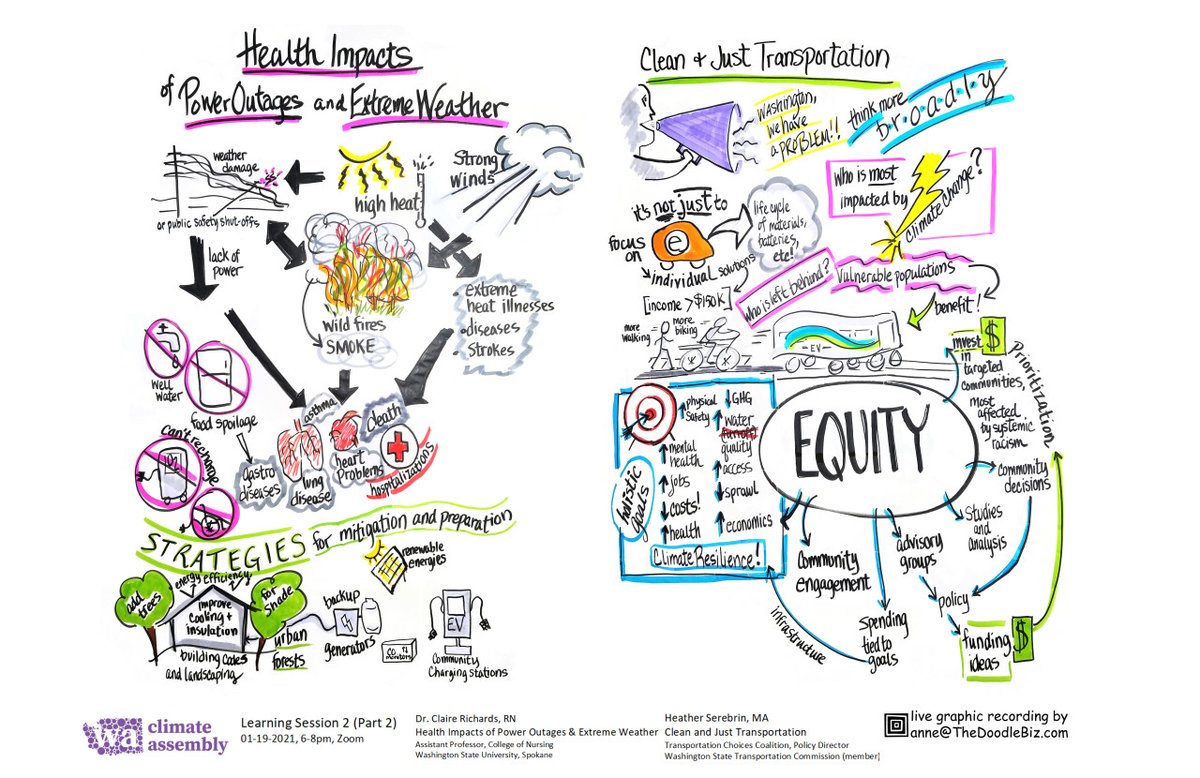 Health Impacts
of Power Outages and Extreme Weather
weather
damage
or public safety shut-offs
high heat
Strong
winds
lack of
power
wild fires
SMOKE
• extreme
heat illnesses
• diseases
• strokes
well
water
food spoilage
can't recharge
gastro
diseases
asthma
lung
disease
heart
problems
death
hospitalizations
STRATEGIES for mitigation and preparation
add
trees
energy efficiency
improve
cooling +
insulation
for
shade
urban
forests
building codes
and landscaping
backup
generators
renewable
energies
CO
monitors
EV
Community
Charging stations
Clean + Just Transportation
Washington,
we have
a PROBLEM!!
think more
b·r·o·a·d·l·y
it's not just to
focus
on
e
individual solutions
life cycle
of materials,
batteries,
etc!
[income >$150K]
who is most
impacted by
climate change?
who is left behind?
Vulnerable populations
benefit!
more
walking
more
biking
EV
invest $
in
targeted
communities,
most
affected
by systemic
racism
Prioritization
EQUITY
holistic
goals
physical
safety
mental
health
jobs
costs!
health
GHG
water
runoff
quality
access
sprawl
economics
Climate Resilience!
community
engagement
infrastructure
spending
tied to
goals
advisory
groups
Studies
and
analysis
community
decisions
policy
funding
ideas
$
wa climate
assembly
Learning Session 2 (Part 2)
01-19-2021, 6-8pm, Zoom
Dr. Claire Richards, RN
Health Impacts of Power Outages & Extreme Weather
Assistant Professor, College of Nursing
Washington State University, Spokane
Heather Serebrin, MA
Clean and Just Transportation
Transportation Choices Coalition, Policy Director
Washington State Transportation Commission (member)
live graphic recording by
anne@TheDoodleBiz.com